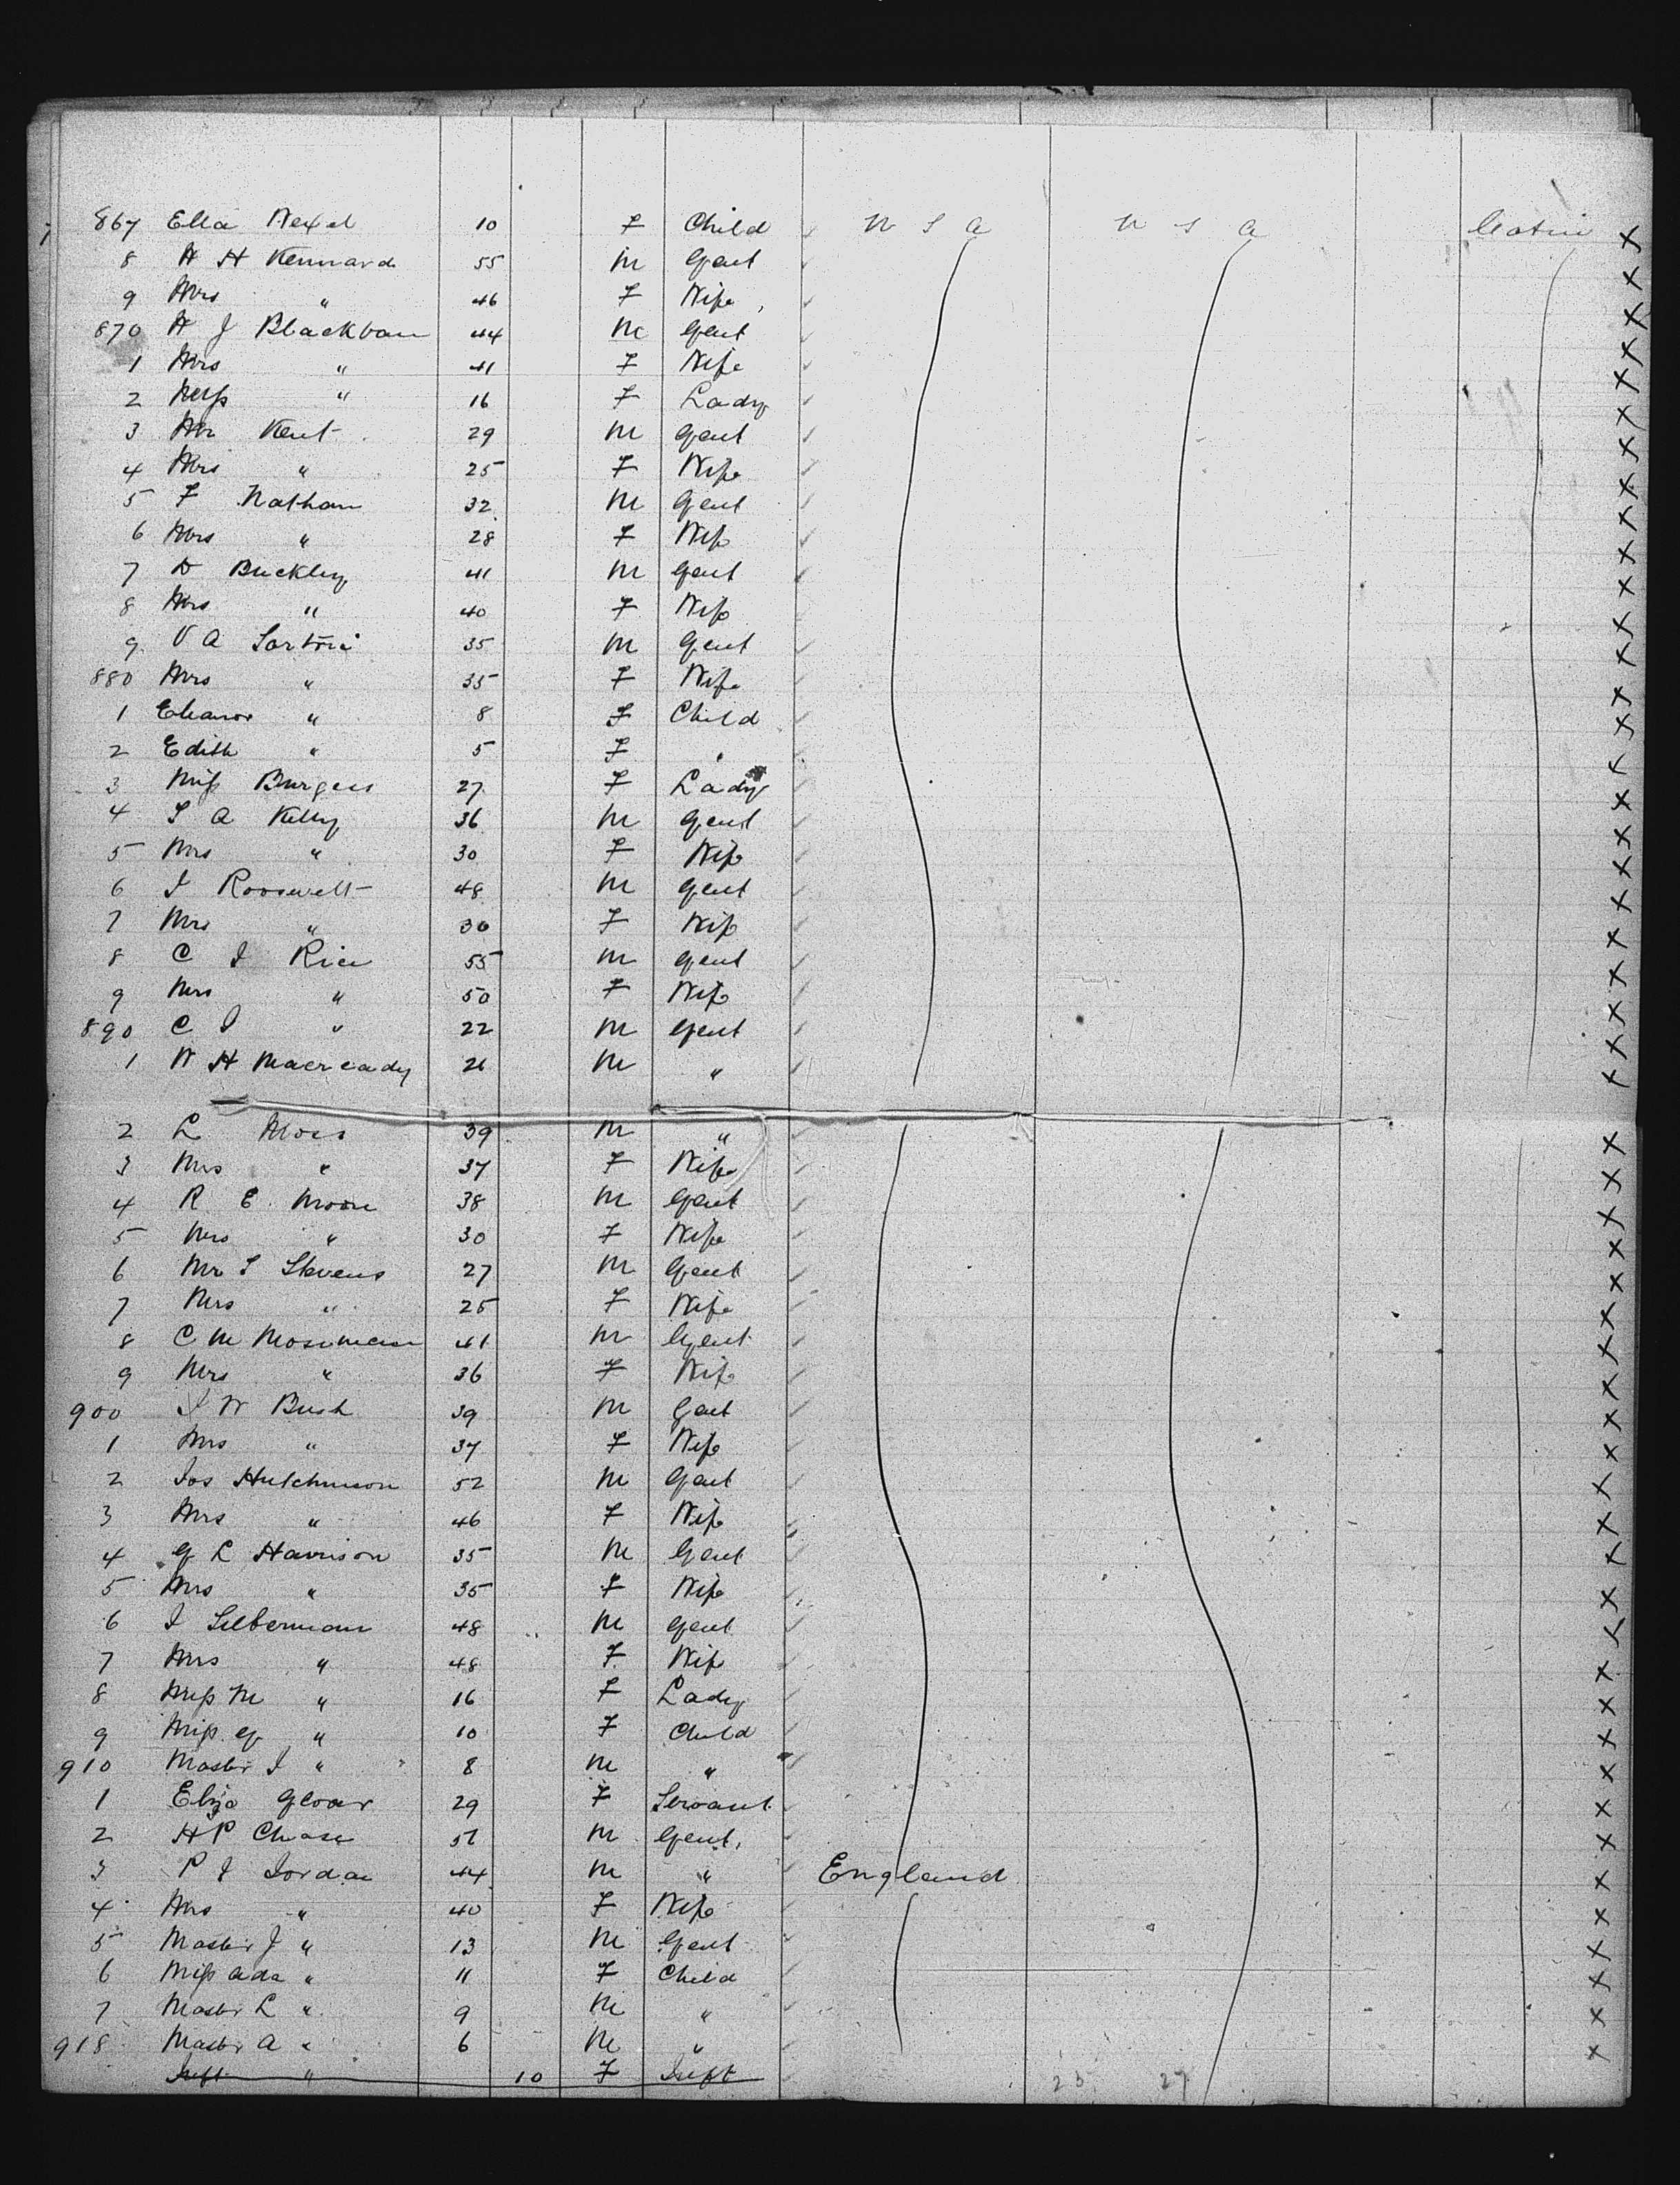 867 Ella Wexel 10 F Child U S A U S A Cabin X
8 W H Kennard 55 M Gent X
9 Mrs " 46 F Wife X
870 W J Blackban 44 M Gent X
1 Mrs " 41 F Wife X
2 Miss " 16 F Lady X
3 Mr Kent 29 M Gent X
4 Mrs " 25 F Wife X
5 F Nathan 32 M Gent X
6 Mrs " 28 F Wife X
7 D Buckley 41 M Gent X
8 Mrs " 40 F Wife X
9 V A Sartori 35 M Gent X
880 Mrs " 35 F Wife X
1 Eleanor " 8 F Child X
2 Edith " 5 F " X
3 Miss Burgess 27 F Lady X
4 S A Kelly 36 M Gent X
5 Mrs " 30 F Wife X
6 J Roosevelt 48 M Gent X
7 Mrs " 30 F Wife X
8 C J Rice 55 M Gent X
9 Mrs " 50 F Wife X
890 C J " 22 M Gent X
1 W H Macready 26 M " X
2 L Moss 39 M " X
3 Mrs " 37 F Wife X
4 R E Moore 38 M Gent X
5 Mrs " 30 F Wife X
6 Mr S Stevens 27 M Gent X
7 Mrs " 25 F Wife X
8 C M Moseman 41 M Gent X
9 Mrs " 36 F Wife X
900 J W Bush 39 M Gent X
1 Mrs " 37 F Wife X
2 Jos Hutchinson 52 M Gent X
3 Mrs " 46 F Wife X
4 G L Harrison 35 M Gent X
5 Mrs " 35 F Wife X
6 J Silberman 48 M Gent X
7 Mrs " 48 F Wife X
8 Miss M " 16 F Lady X
9 Miss G " 10 F Child X
910 Master J " 8 M " X
1 Eliza Gloar 29 F Servant X
2 H P Chase 51 M Gent X
3 P J Jordan 44 M " England X
4 Mrs " 40 F Wife X
5 Master J " 13 M Gent X
6 Miss Ada " 11 F Child X
7 Master L " 9 M " X
918 Master A " 6 M " X
Inft " 10 F Inft 23 27